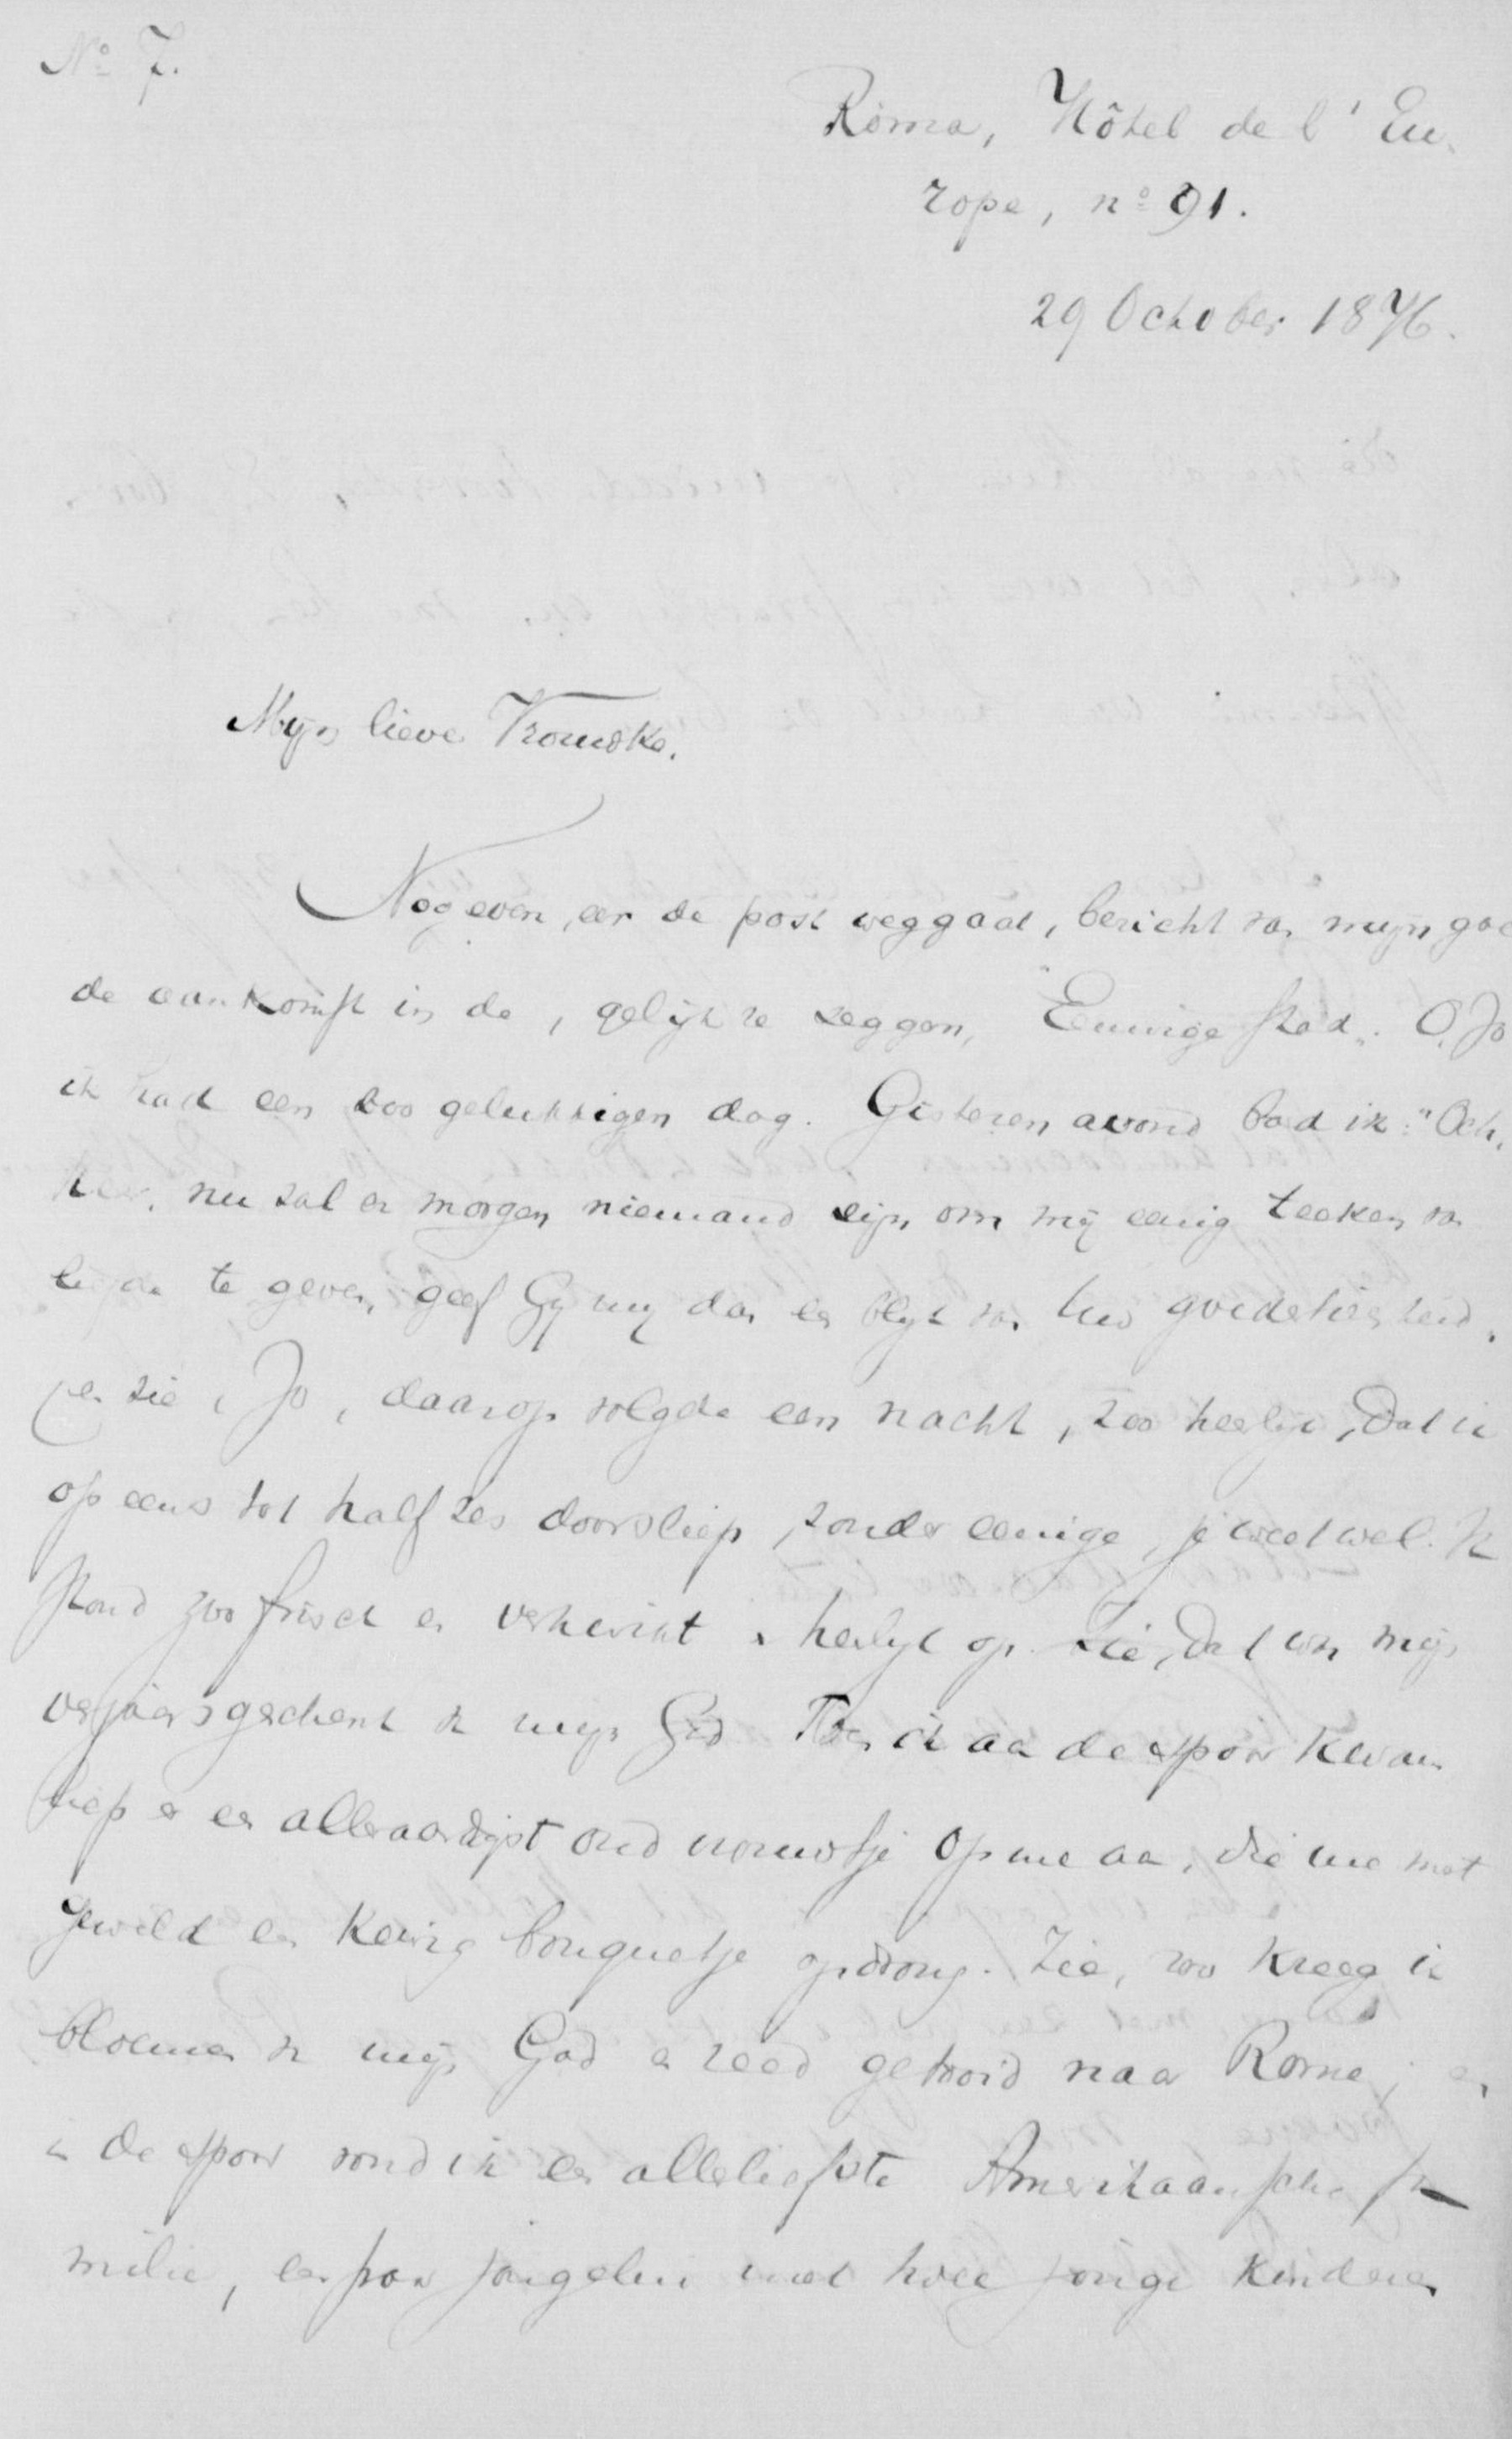 No 7.
Roma, Hôtel de l'Eu-
rope, no 91.
29 October 1876.
Mijn lieve Vrouwke.
Nog even, eer de post weggaat, bericht van mijn goe
de aankomst in de, gelijk ze zeggen, "Eeuwige stad". O, Jo
ik had een zoo gelukkigen dag. Gisteren avond bad ik: "Och,
heer, nu zal er morgen niemand zijn om mij eenig teeken van
liefde te geven, geef Gij mij dan een blijk van Uw goedertierenheid.
en zie, Jo, daarop volgde een nacht, zoo heerlijk, dat ik
op eens tot half zes doorsliep, zonder eenige, je weet wel. Ik
stond zoo frisch en verkwikt en heerlijk op. Zie, dat was mijn
verjaarsgeschenk van mijn God. Toen ik aan de spoor kwam
liep er een alleraardigst oud vrouwtje op me aan, die me met
geweld een keurig bouquetje opdrong. Zie, zoo kreeg ik
bloemen van mijn God en reed getooid naar Rome; en
in de spoor vond ik een allerliefste Amerikaansche fa-
milie, een paar jongelui met twee jonge kinderen